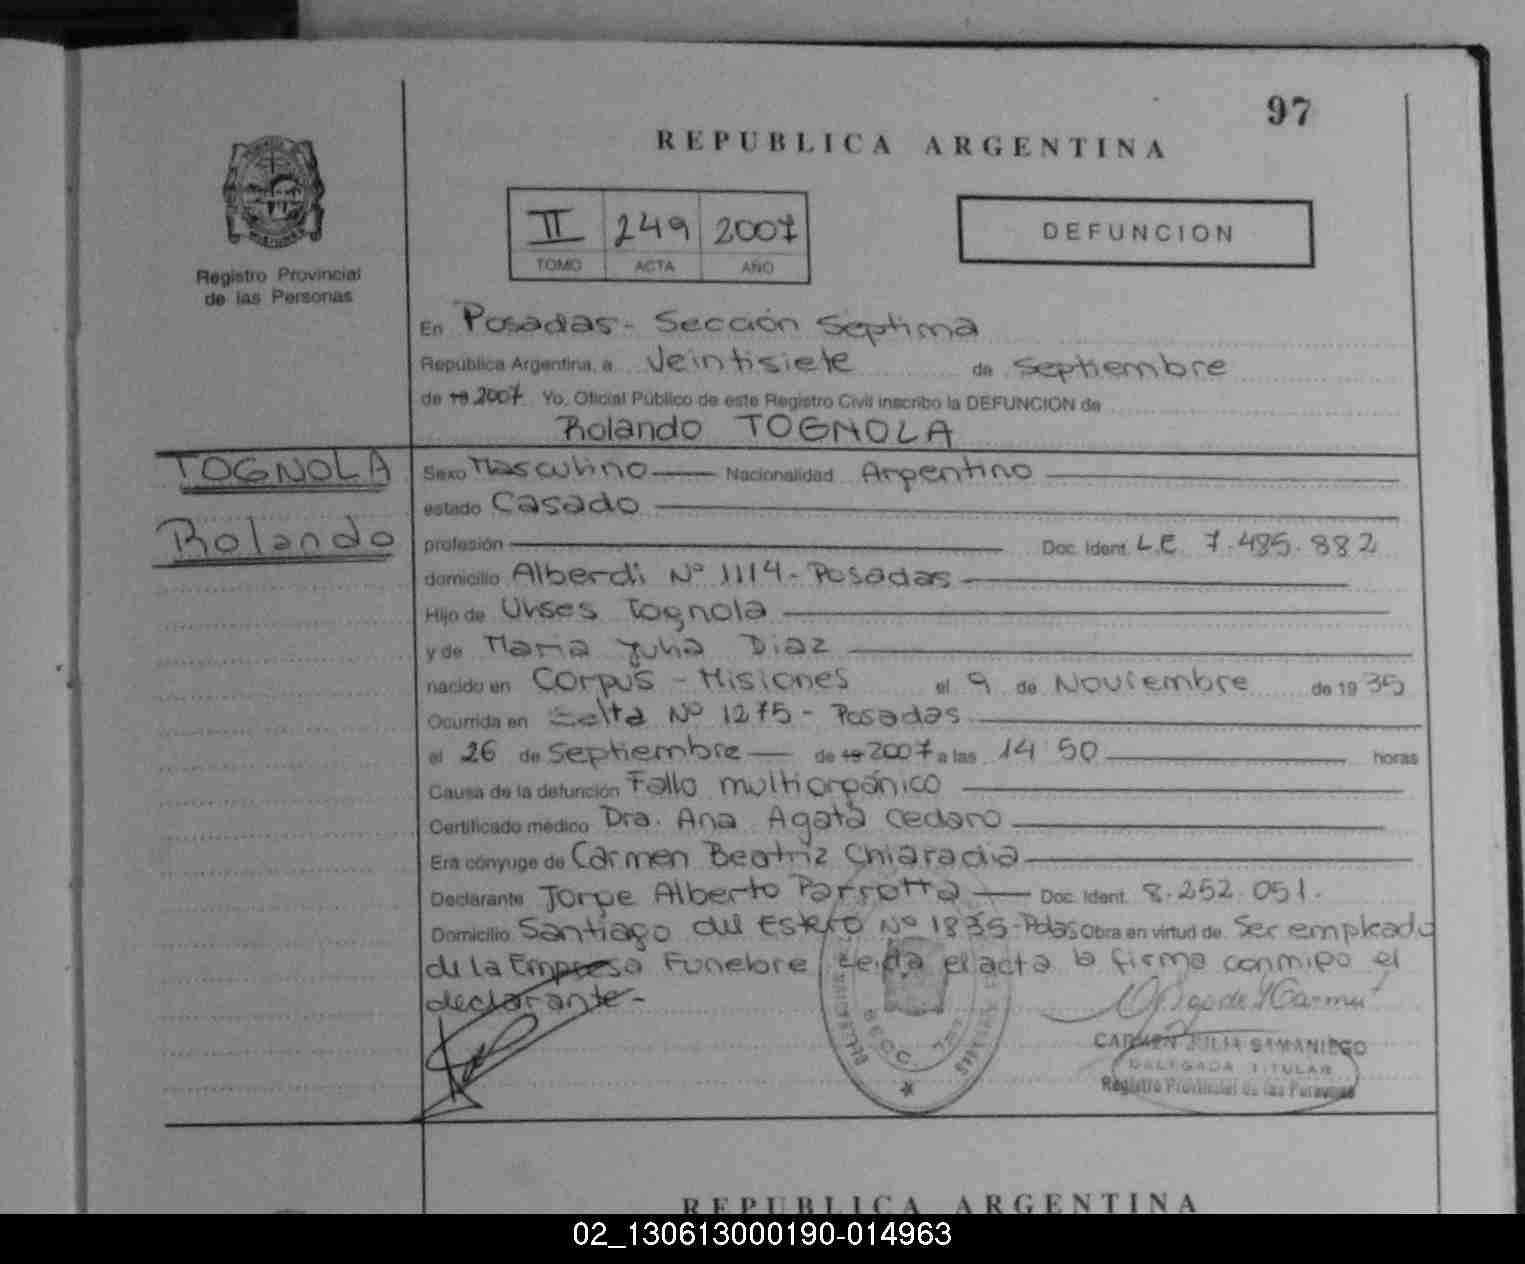 97
REPUBLICA ARGENTINA
II 249 2007
TOMO ACTA AÑO
DEFUNCION
Registro Provincial
de las Personas
En Posadas - Sección Septima
República Argentina, a veintisiete de Septiembre
de 19 2007 Yo, Oficial Público de este Registro Civil inscribo la DEFUNCION de
Rolando TOGNOLA
TOGNOLA
Rolando
Sexo Masculino Nacionalidad Argentino
estado Casado
profesión Doc. Ident. L.E. 7.485.882
domicilio Alberdi Nº 1114 - Posadas
Hijo de Ulises Tognola
y de Maria Julia Diaz
nacido en Corpus - Misiones el 9 de Noviembre de 19 35
Ocurrida en Salta Nº 1275 - Posadas
el 26 de Septiembre de 19 2007 a las 14 50 horas
Causa de la defunción Fallo multiorgánico
Certificado médico Dra. Ana Agata Cedaro
Era cónyuge de Carmen Beatriz Chiaradia
Declarante Jorge Alberto Parrotta Doc. Ident. 8.252.051.
Domicilio Santiago del Estero Nº 1835 - Pdas Obra en virtud de Ser empleado
de la Empresa Funebre Leida el acta la firma conmigo el
declarante -
SECC 7
CARMEN JULIA SAMANIEGO
DELEGADA TITULAR
Registro Provincial de las Personas
REPUBLICA ARGENTINA
02_130613000190-014963